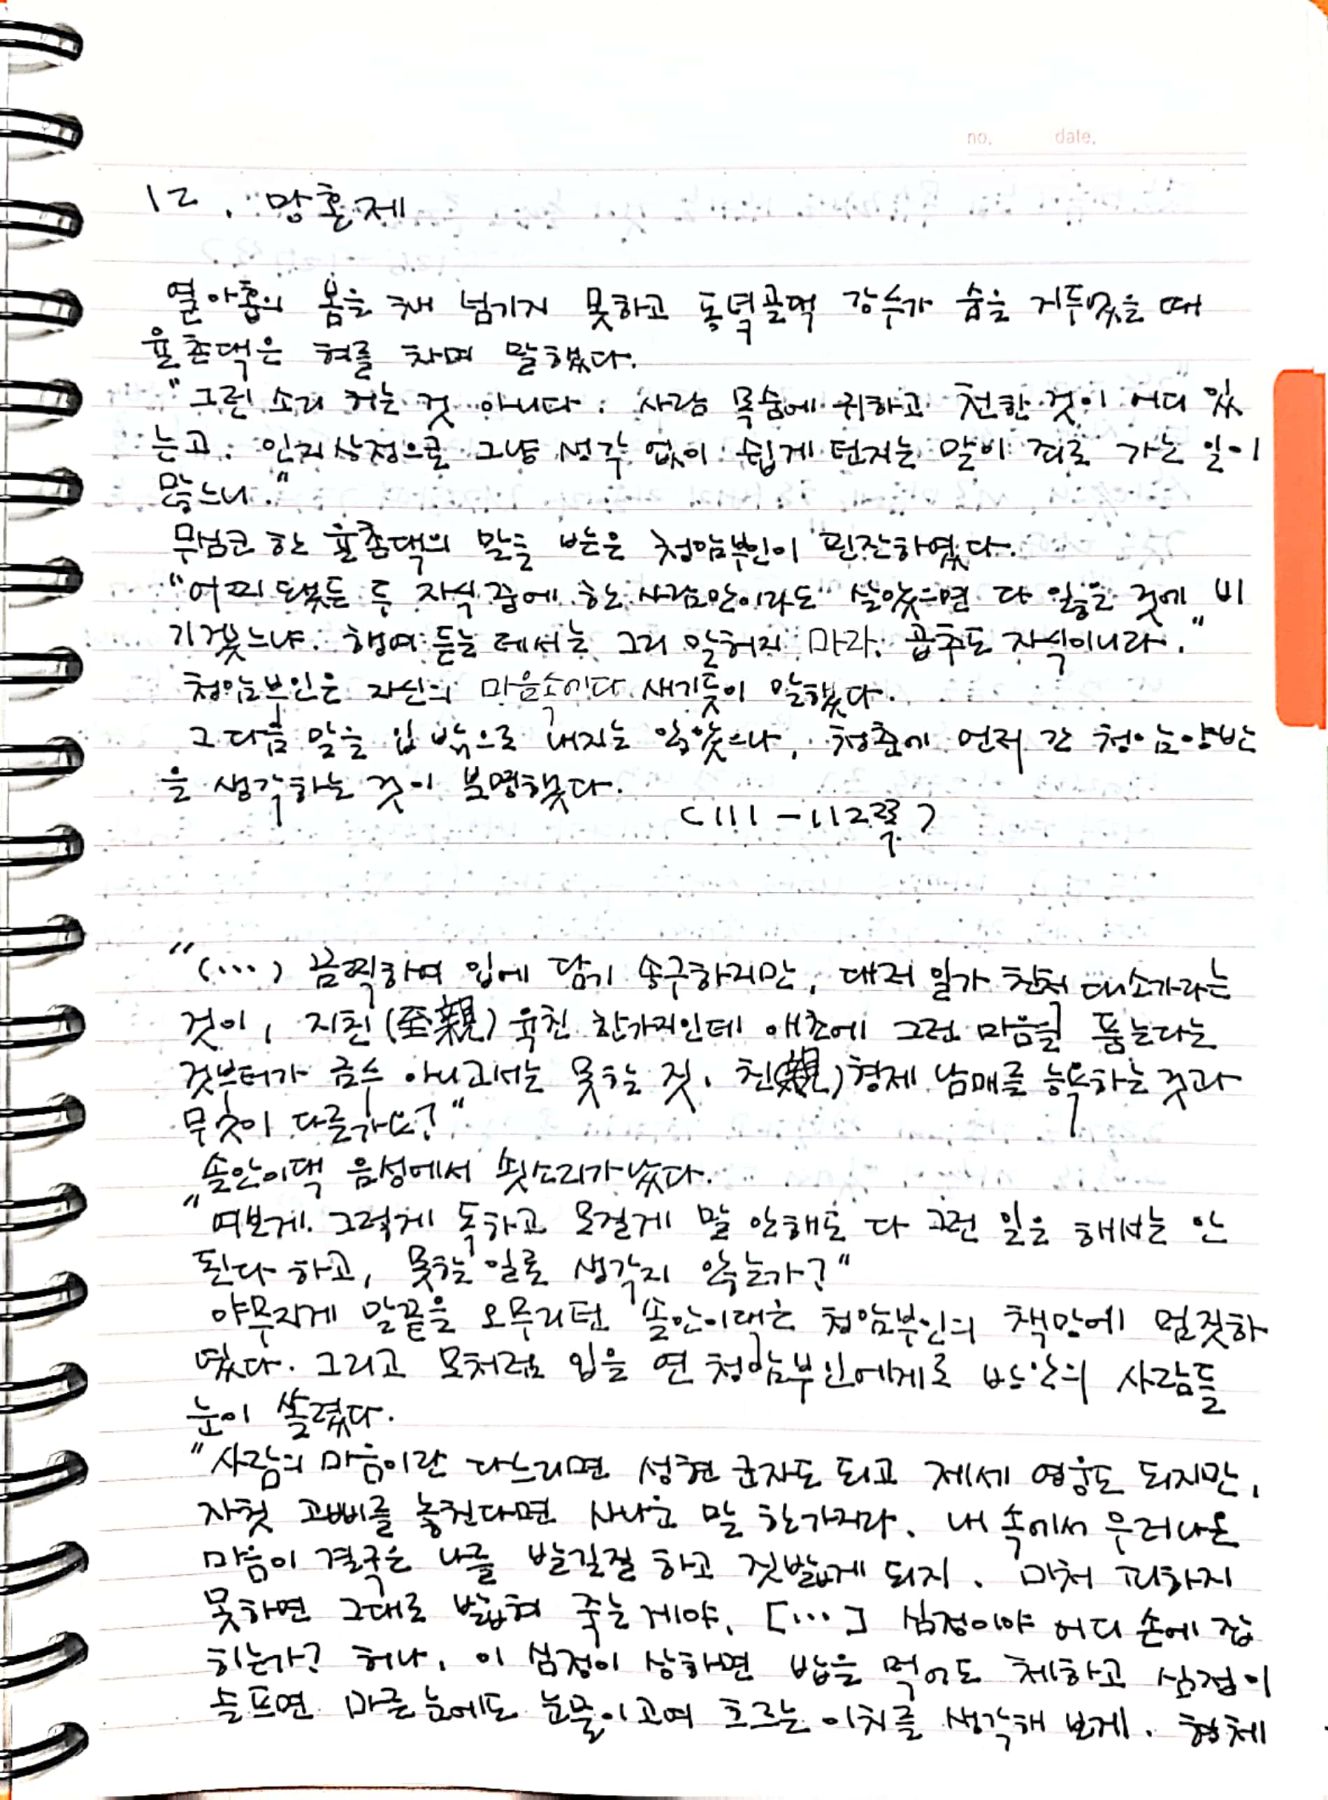 no.    date.
12. 망혼제
열아홉의 봄을 채 넘기지 못하고 동녘골댁 강수가 숨을 거두었을 때
율촌댁은 혀를 차며 말했다.
"그런 소리 허는 것 아니다. 사람 목숨에 귀하고 천한 것이 어디 있
는고. 인지상정으로 그냥 생각 없이 쉽게 던지는 말이 죄로 가는 일이
많느니."
무심코 한 율촌댁의 말을 받은 청암부인이 핀잔하였다.
"어찌 됐든 두 자식 중에 한 사람만이라도 살았으면 다 잃은 것에 비
기겠느냐. 행여 듣는 데서는 그리 말허지 마라. 곱추도 자식이니라."
청암부인은 자신의 마음속에다 새기듯이 말했다.
그 다음 말을 입 밖으로 내지는 않았으나, 청춘에 먼저 간 청암양반
을 생각하는 것이 분명했다.
(111-112쪽)
"(…) 끔찍하여 입에 담기 송구하지만, 대저 일가 친척 대소가라는
것이, 지친(至親) 육친 한가지인데 애초에 그런 마음을 품는다는
것부터가 금수 아니고서는 못하는 짓. 친(親)형제 남매를 능욕하는 것과
무엇이 다를까요?"
솔안이댁 음성에서 쇳소리가 났다.
"여보게. 그렇게 독하고 모질게 말 안해도 다 그런 일은 해서는 안
된다 하고, 못하는 일로 생각지 않는가?"
야무지게 말끝을 오무리던 솔안이댁은 청암부인의 책망에 멈짓하
였다. 그리고 모처럼 입을 연 청암부인에게로 방안의 사람들
눈이 쏠렸다.
"사람의 마음이란 다스리면 성현 군자도 되고 제세 영웅도 되지만,
자칫 고삐를 놓친다면 사나운 말 한가지라. 내 속에서 우러나온
마음이 결국은 나를 발길질 하고 짓밟게 되지. 미처 피하지
못하면 그대로 밟혀 죽는 게야. […] 심정이야 어디 손에 잡
히는가? 허나, 이 심정이 상하면 밥을 먹어도 체하고 심정이
슬프면 마른 눈에도 눈물이 고여 흐르는 이치를 생각해 보게. 형체